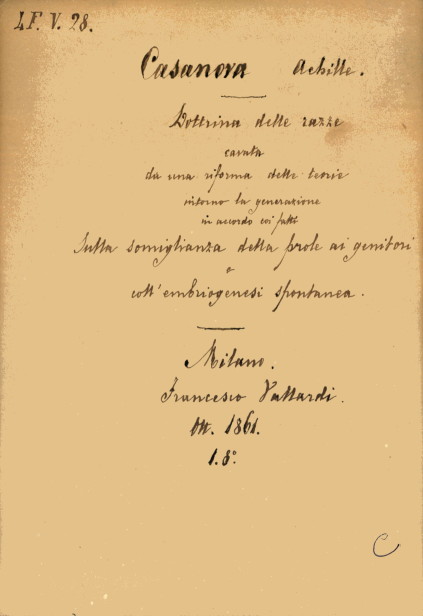 LF. V. 28.
Casanova Achille.
Dottrina delle razze
cavata
da una riforma delle teorie
intorno la generazione
in accordo coi fatti
sulla somiglianza della prole ai genitori
e
coll' embriogenesi spontanea.
Milano.
Francesco Vallardi.
Ott. 1861.
1. 8°.
C